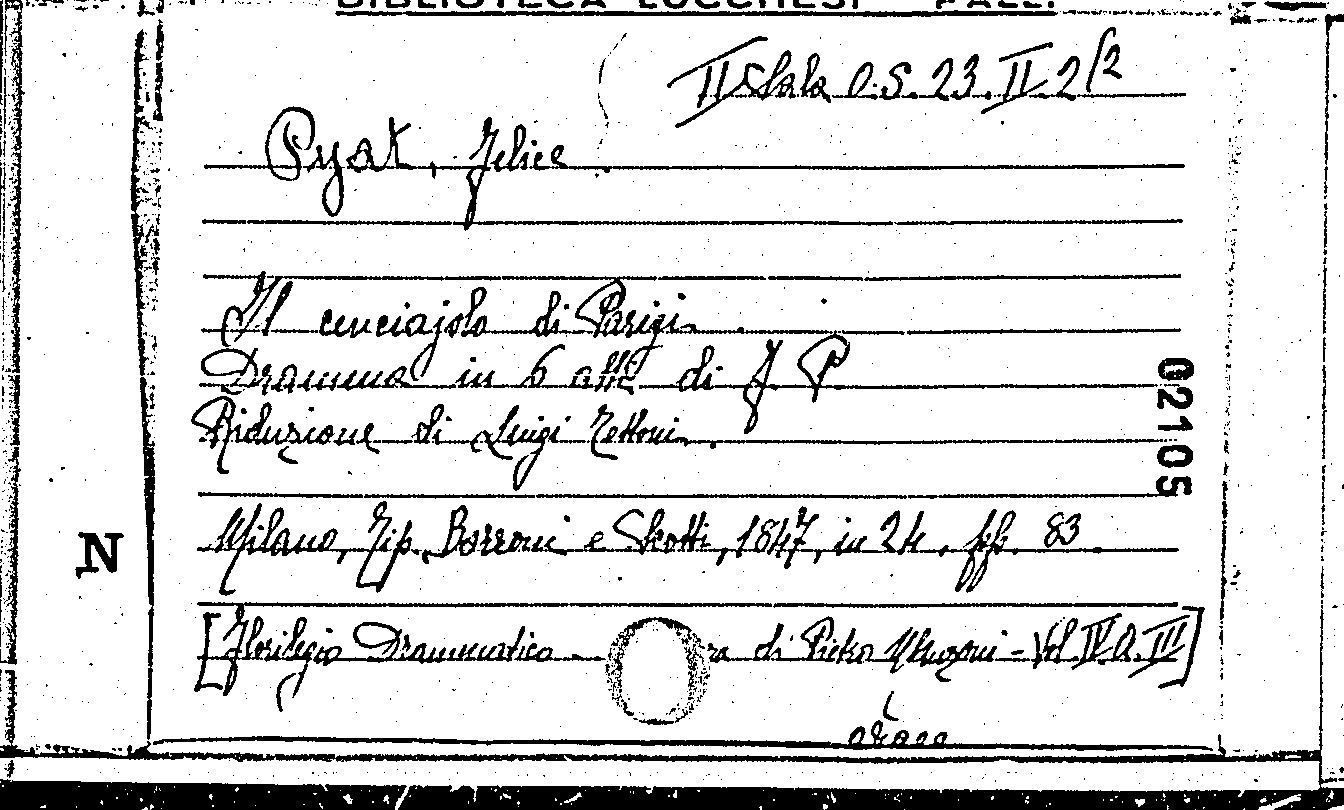 BIBLIOTECA LUCCHESI - PALLI
II Sala O.S. 23. II. 2/2
Pyat, Felice
Il cenciajolo di Parigi
Dramma in 6 atti di F. P.
Riduzione di Luigi Zettoni.
Milano, Tip. Borroni e Scotti, 1847, in 24. pp. 83.
[Florilegio Drammatico - ra di Pietro Manzoni - Vol. IV. A. III]
N
02105